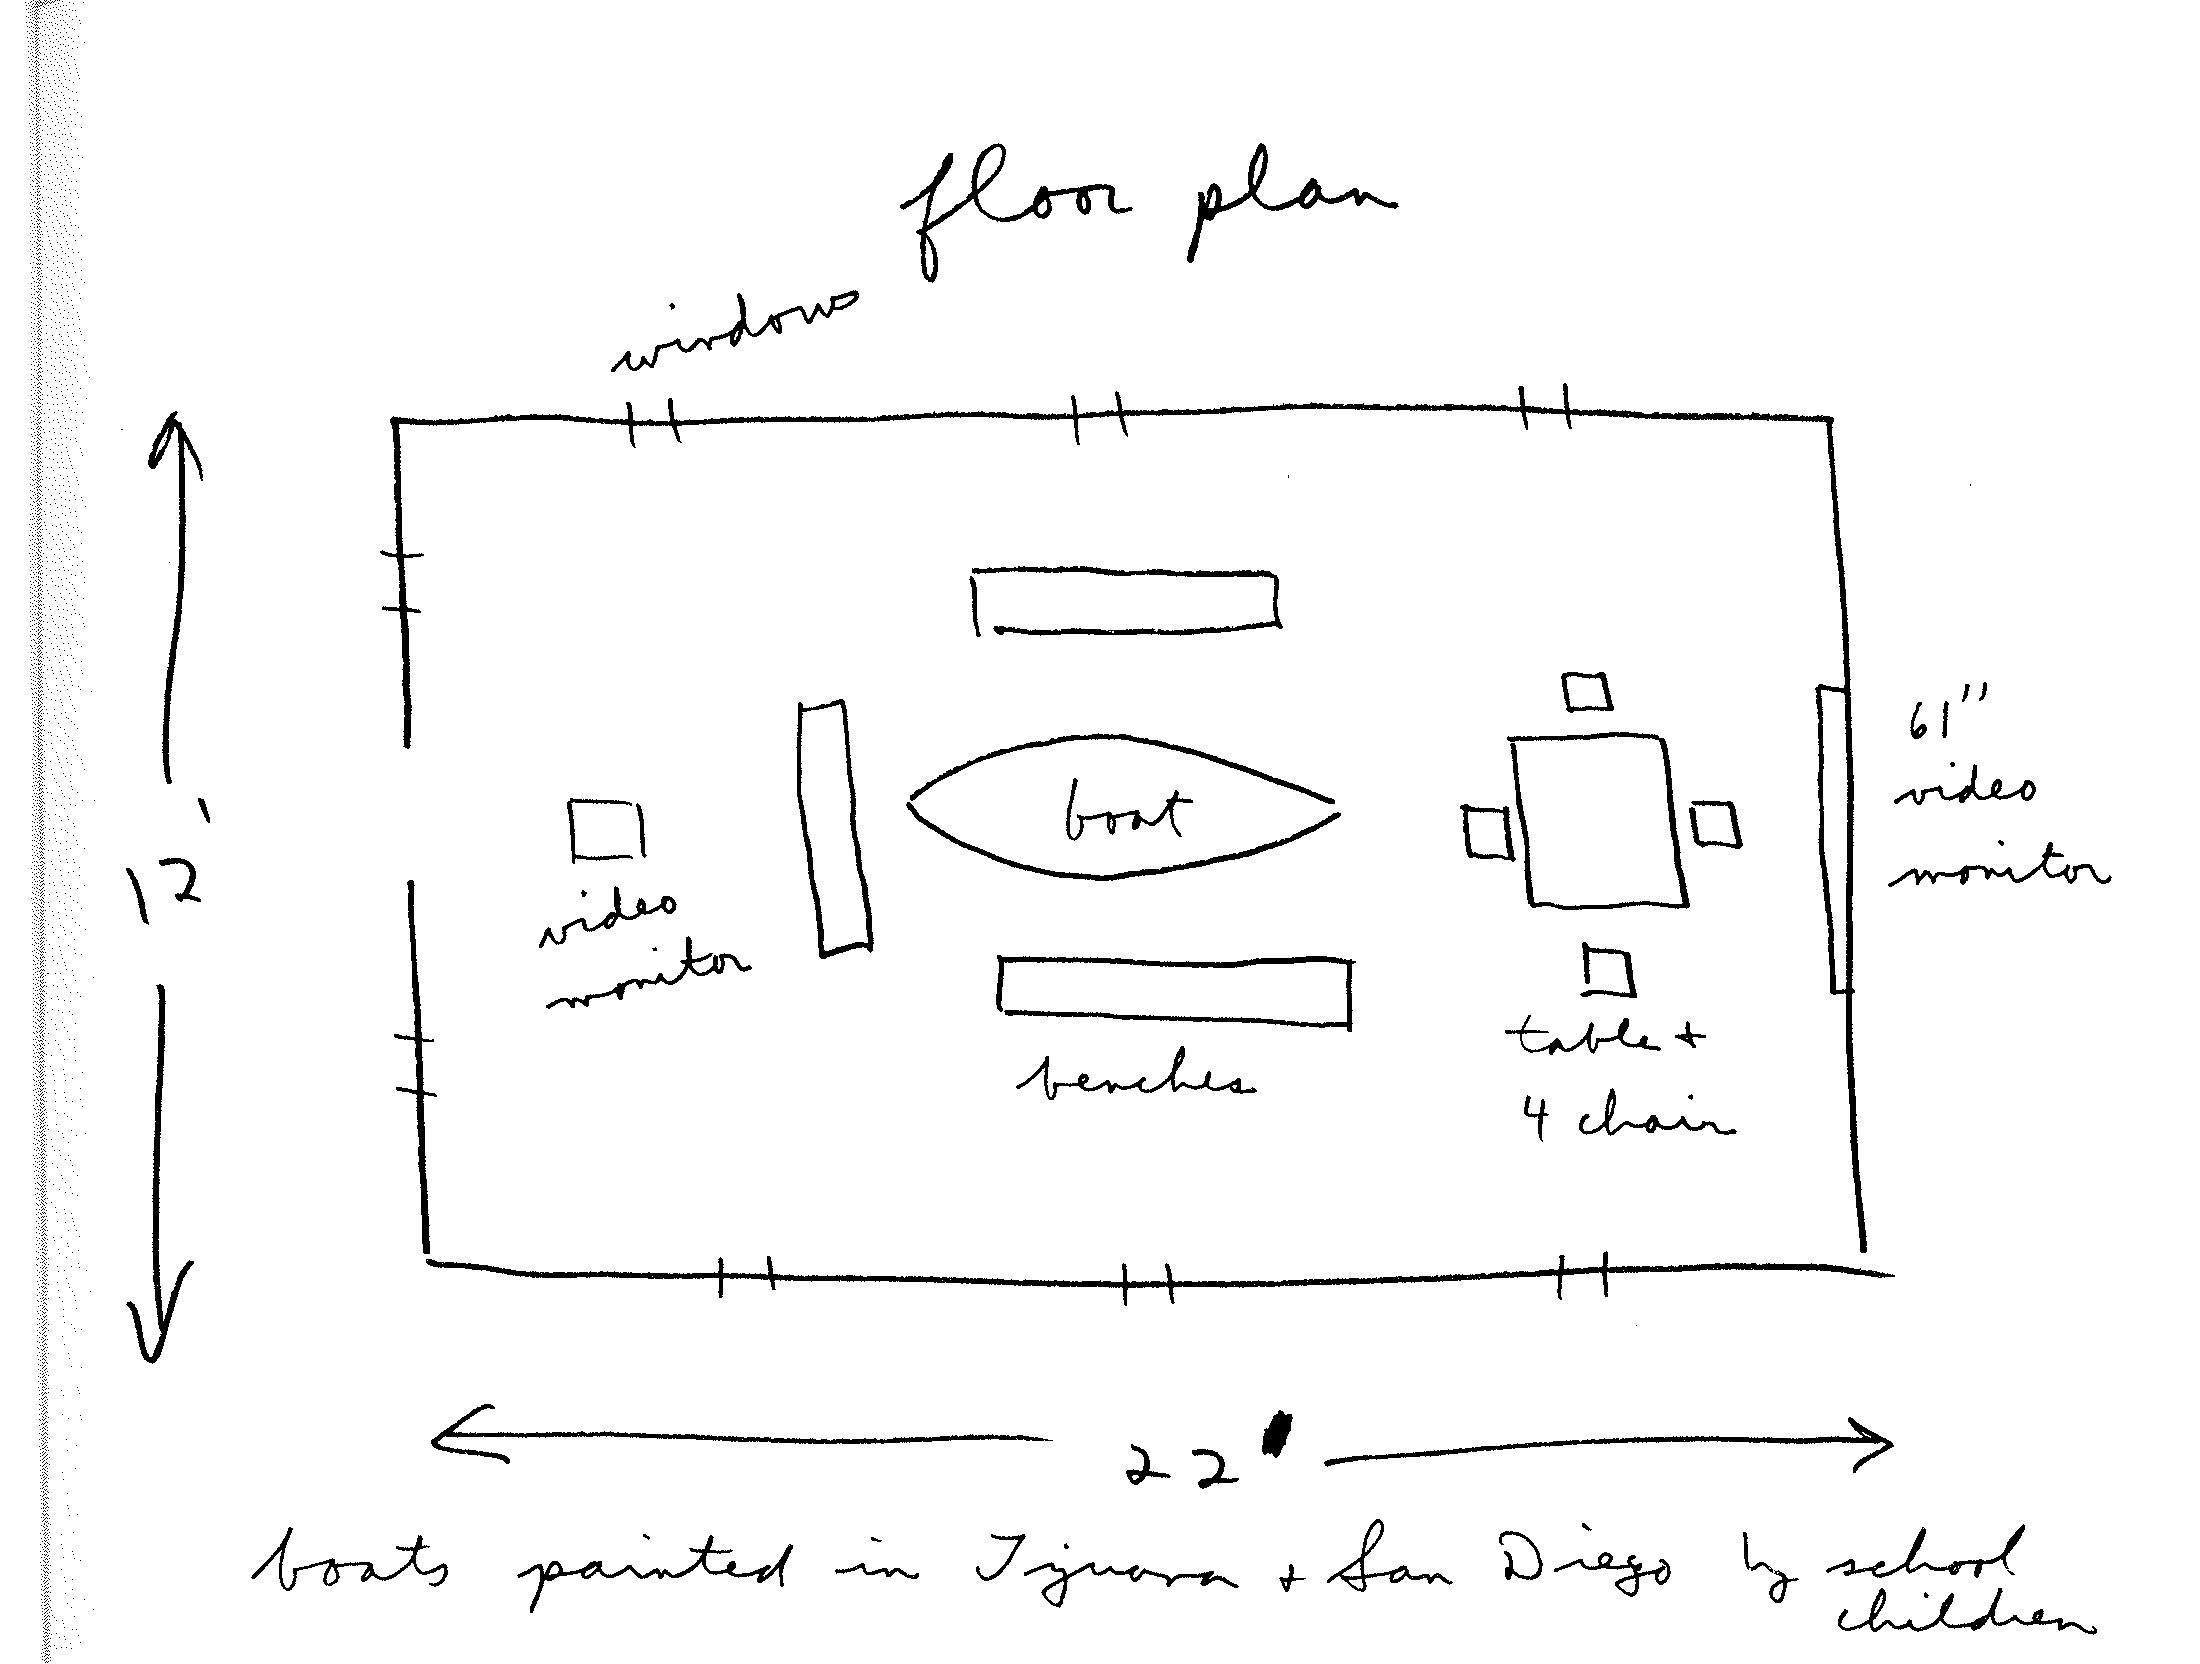 floor plan
windows
12'
boat
61"
video
monitor
video
monitor
benches
table +
4 chair
22'
boats painted in Tijuana + San Diego by school
children